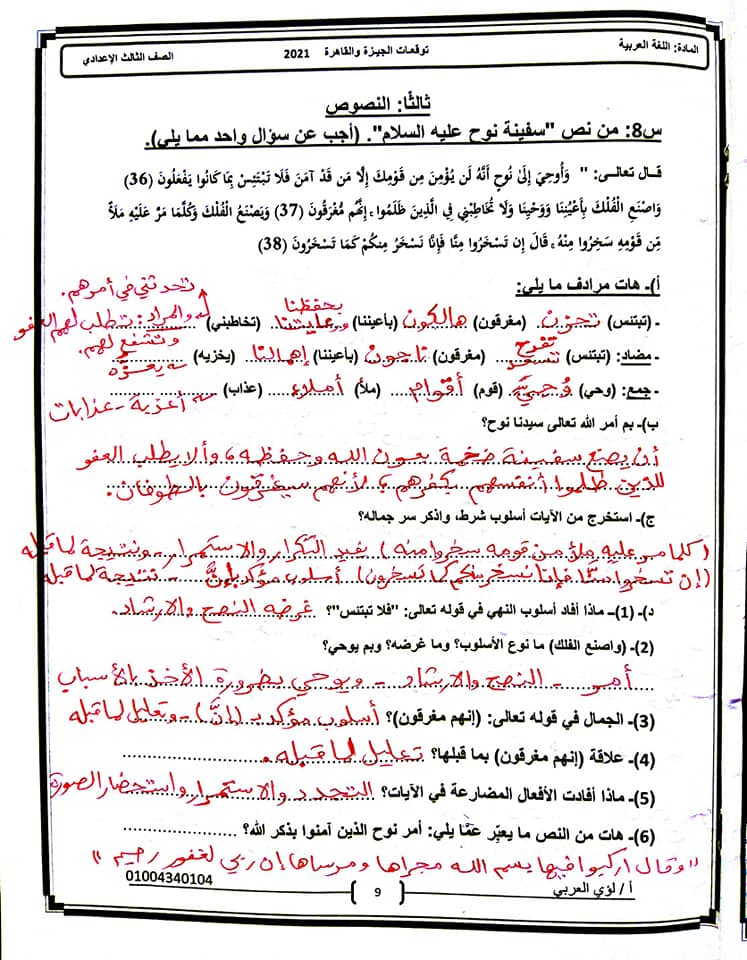 المادة: اللغة العربية توقعات الجيزة والقاهرة 2021 الصف الثالث الإعدادي
ثالثًا: النصوص
س8: من نص "سفينة نوح عليه السلام". (أجب عن سؤال واحد مما يلي).
قال تعالى: " وَأُوحِيَ إِلَىٰ نُوحٍ أَنَّهُ لَن يُؤْمِنَ مِن قَوْمِكَ إِلَّا مَن قَدْ آمَنَ فَلَا تَبْتَئِسْ بِمَا كَانُوا يَفْعَلُونَ (36)
وَاصْنَعِ الْفُلْكَ بِأَعْيُنِنَا وَوَحْيِنَا وَلَا تُخَاطِبْنِي فِي الَّذِينَ ظَلَمُوا ۚ إِنَّهُم مُّغْرَقُونَ (37) وَيَصْنَعُ الْفُلْكَ وَكُلَّمَا مَرَّ عَلَيْهِ مَلَأٌ
مِّن قَوْمِهِ سَخِرُوا مِنْهُ ۚ قَالَ إِن تَسْخَرُوا مِنَّا فَإِنَّا نَسْخَرُ مِنكُمْ كَمَا تَسْخَرُونَ (38)
أ)- هات مرادف ما يلي:
تحدثني في أمرهم.
- (تبتئس) تحزن (مغرقون) هالكون (بأعيننا) بحفظنا ورعايتنا (تخاطبني) والمراد: تطلب لهم العفو
وتشفع لهم.
- مضاد: (تبتئس) تفرح تسعد (مغرقون) ناجون (بأعيننا) إهمالنا (يخزيه) يعزّه
- جمع: (وحي) وُحِيّ (قوم) أقوام (ملأ) أملاء (عذاب) أعذبة - عذابات
ب)- بم أمر الله تعالى سيدنا نوح؟
أن يصنع سفينة ضخمة بعون الله وحفظه، وألا يطلب العفو
للذين ظلموا أنفسهم بكفرهم، لأنهم سيغرقون بالطوفان.
ج)- استخرج من الآيات أسلوب شرط، واذكر سر جماله؟
(كلما مر عليه ملأ من قومه سخروا منه) يفيد التكرار والاستمرار - ونتيجة لما قبله
(إن تسخروا منّا فإنا نسخر منكم كما تسخرون) أسلوب مؤكد بإنَّ - نتيجة لما قبله
د)- (1)- ماذا أفاد أسلوب النهي في قوله تعالى: "فلا تبتئس"؟ غرضه النصح والإرشاد.
(2)- (واصنع الفلك) ما نوع الأسلوب؟ وما غرضه؟ وبم يوحي؟
أمر - النصح والإرشاد - ويوحي بضرورة الأخذ بالأسباب
(3)- الجمال في قوله تعالى: (إنهم مغرقون)؟ أسلوب مؤكد بـ (إنَّ) - وتعليل لما قبله
(4)- علاقة (إنهم مغرقون) بما قبلها؟ تعليل لما قبله.
(5)- ماذا أفادت الأفعال المضارعة في الآيات؟ التجدد والاستمرار واستحضار الصورة
(6)- هات من النص ما يعبّر عمَّا يلي: أمر نوح الذين آمنوا بذكر الله؟
"وقال اركبوا فيها بسم الله مجراها ومرساها إن ربي لغفور رحيم"
أ / لؤي العربي 9 01004340104